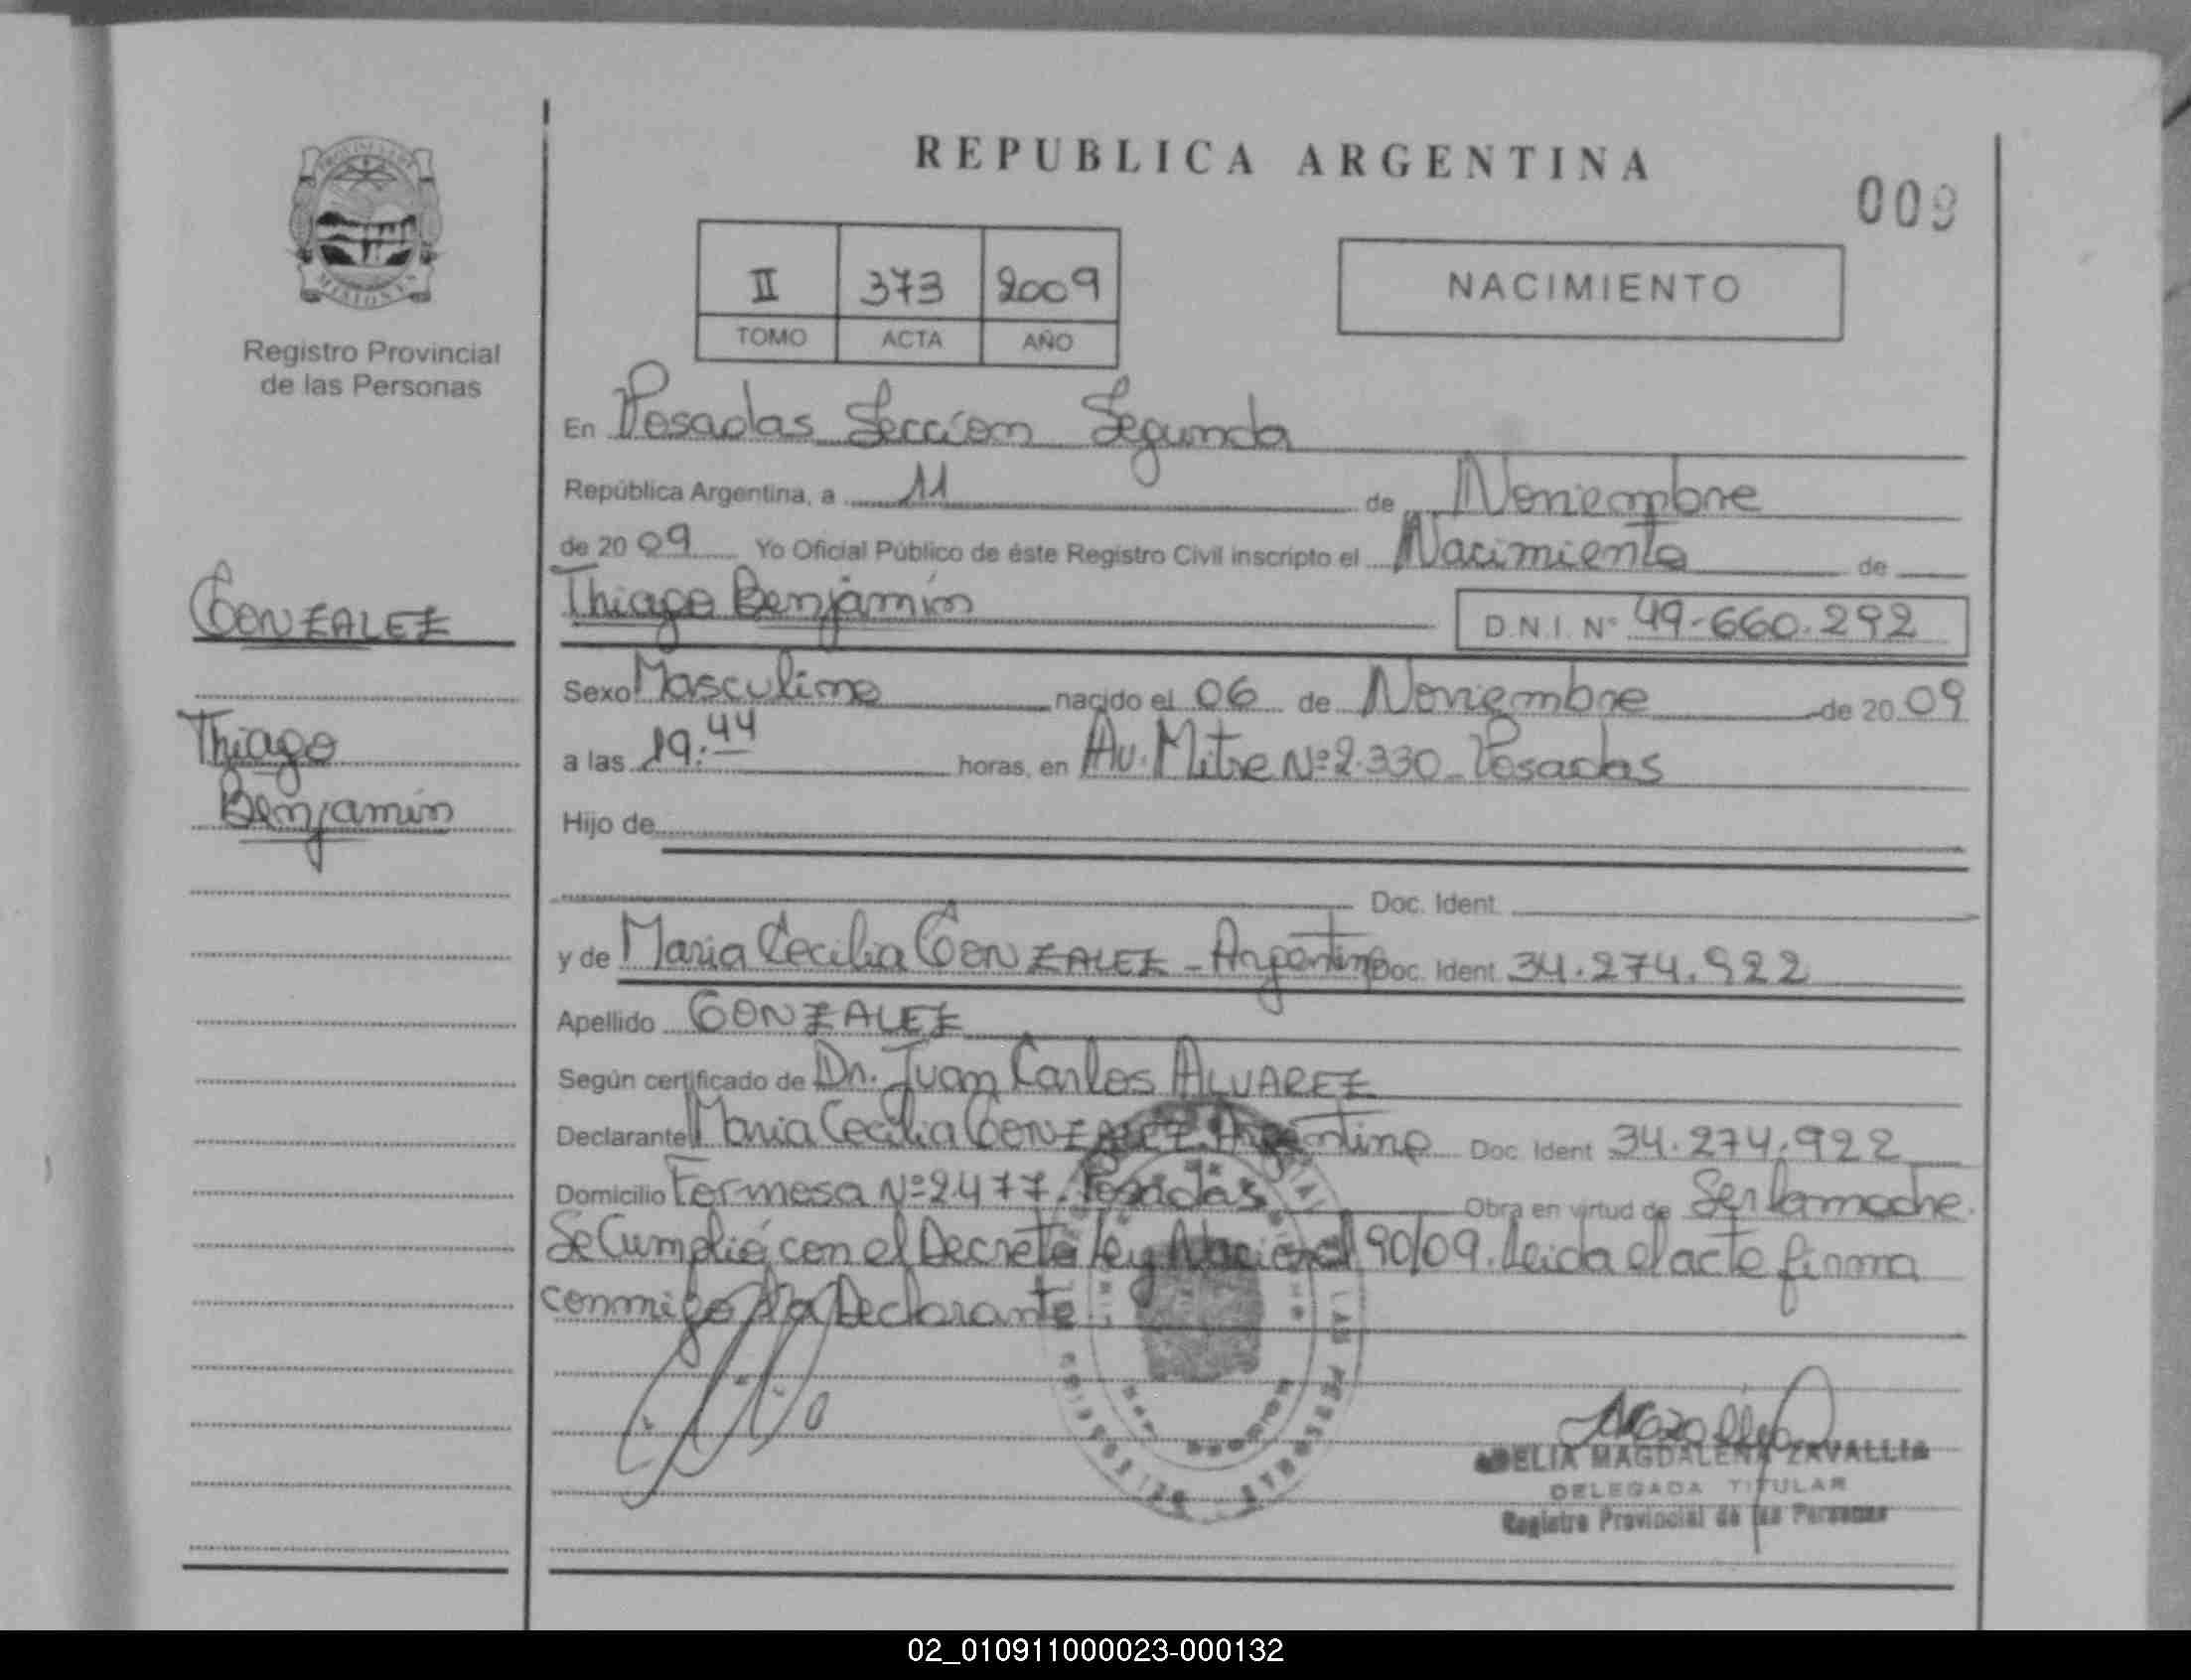 REPUBLICA ARGENTINA
009
PROVINCIA DE
MISIONES
Registro Provincial
de las Personas
II 373 2009
TOMO ACTA AÑO
NACIMIENTO
En Posadas Sección Segunda
República Argentina, a 11 de Noviembre
de 2009 Yo Oficial Público de éste Registro Civil inscripto el Nacimiento de
GONZALEZ
Thiago Benjamín
D.N.I. Nº 49.660.292
Sexo Masculino nacido el 06 de Noviembre de 2009
Thiago
Benjamín
a las 19:44 horas, en Av. Mitre Nº 2.330 - Posadas
Hijo de
Doc. Ident.
y de Maria Cecilia GONZALEZ - Argentina Doc. Ident. 34.274.922
Apellido GONZALEZ
Según certificado de Dr. Juan Carlos ALVAREZ
Declarante Maria Cecilia GONZALEZ. Argentina Doc. Ident 34.274.922
Domicilio Formosa Nº 2477. Posadas Obra en virtud de Ser la madre.
Se Cumplió con el Decreto Ley Nacional 90/09. Leida el acta firma
conmigo la Declarante.
DELIA MAGDALENA ZAVALLIA
DELEGADA TITULAR
Registro Provincial de las Personas
02_010911000023-000132